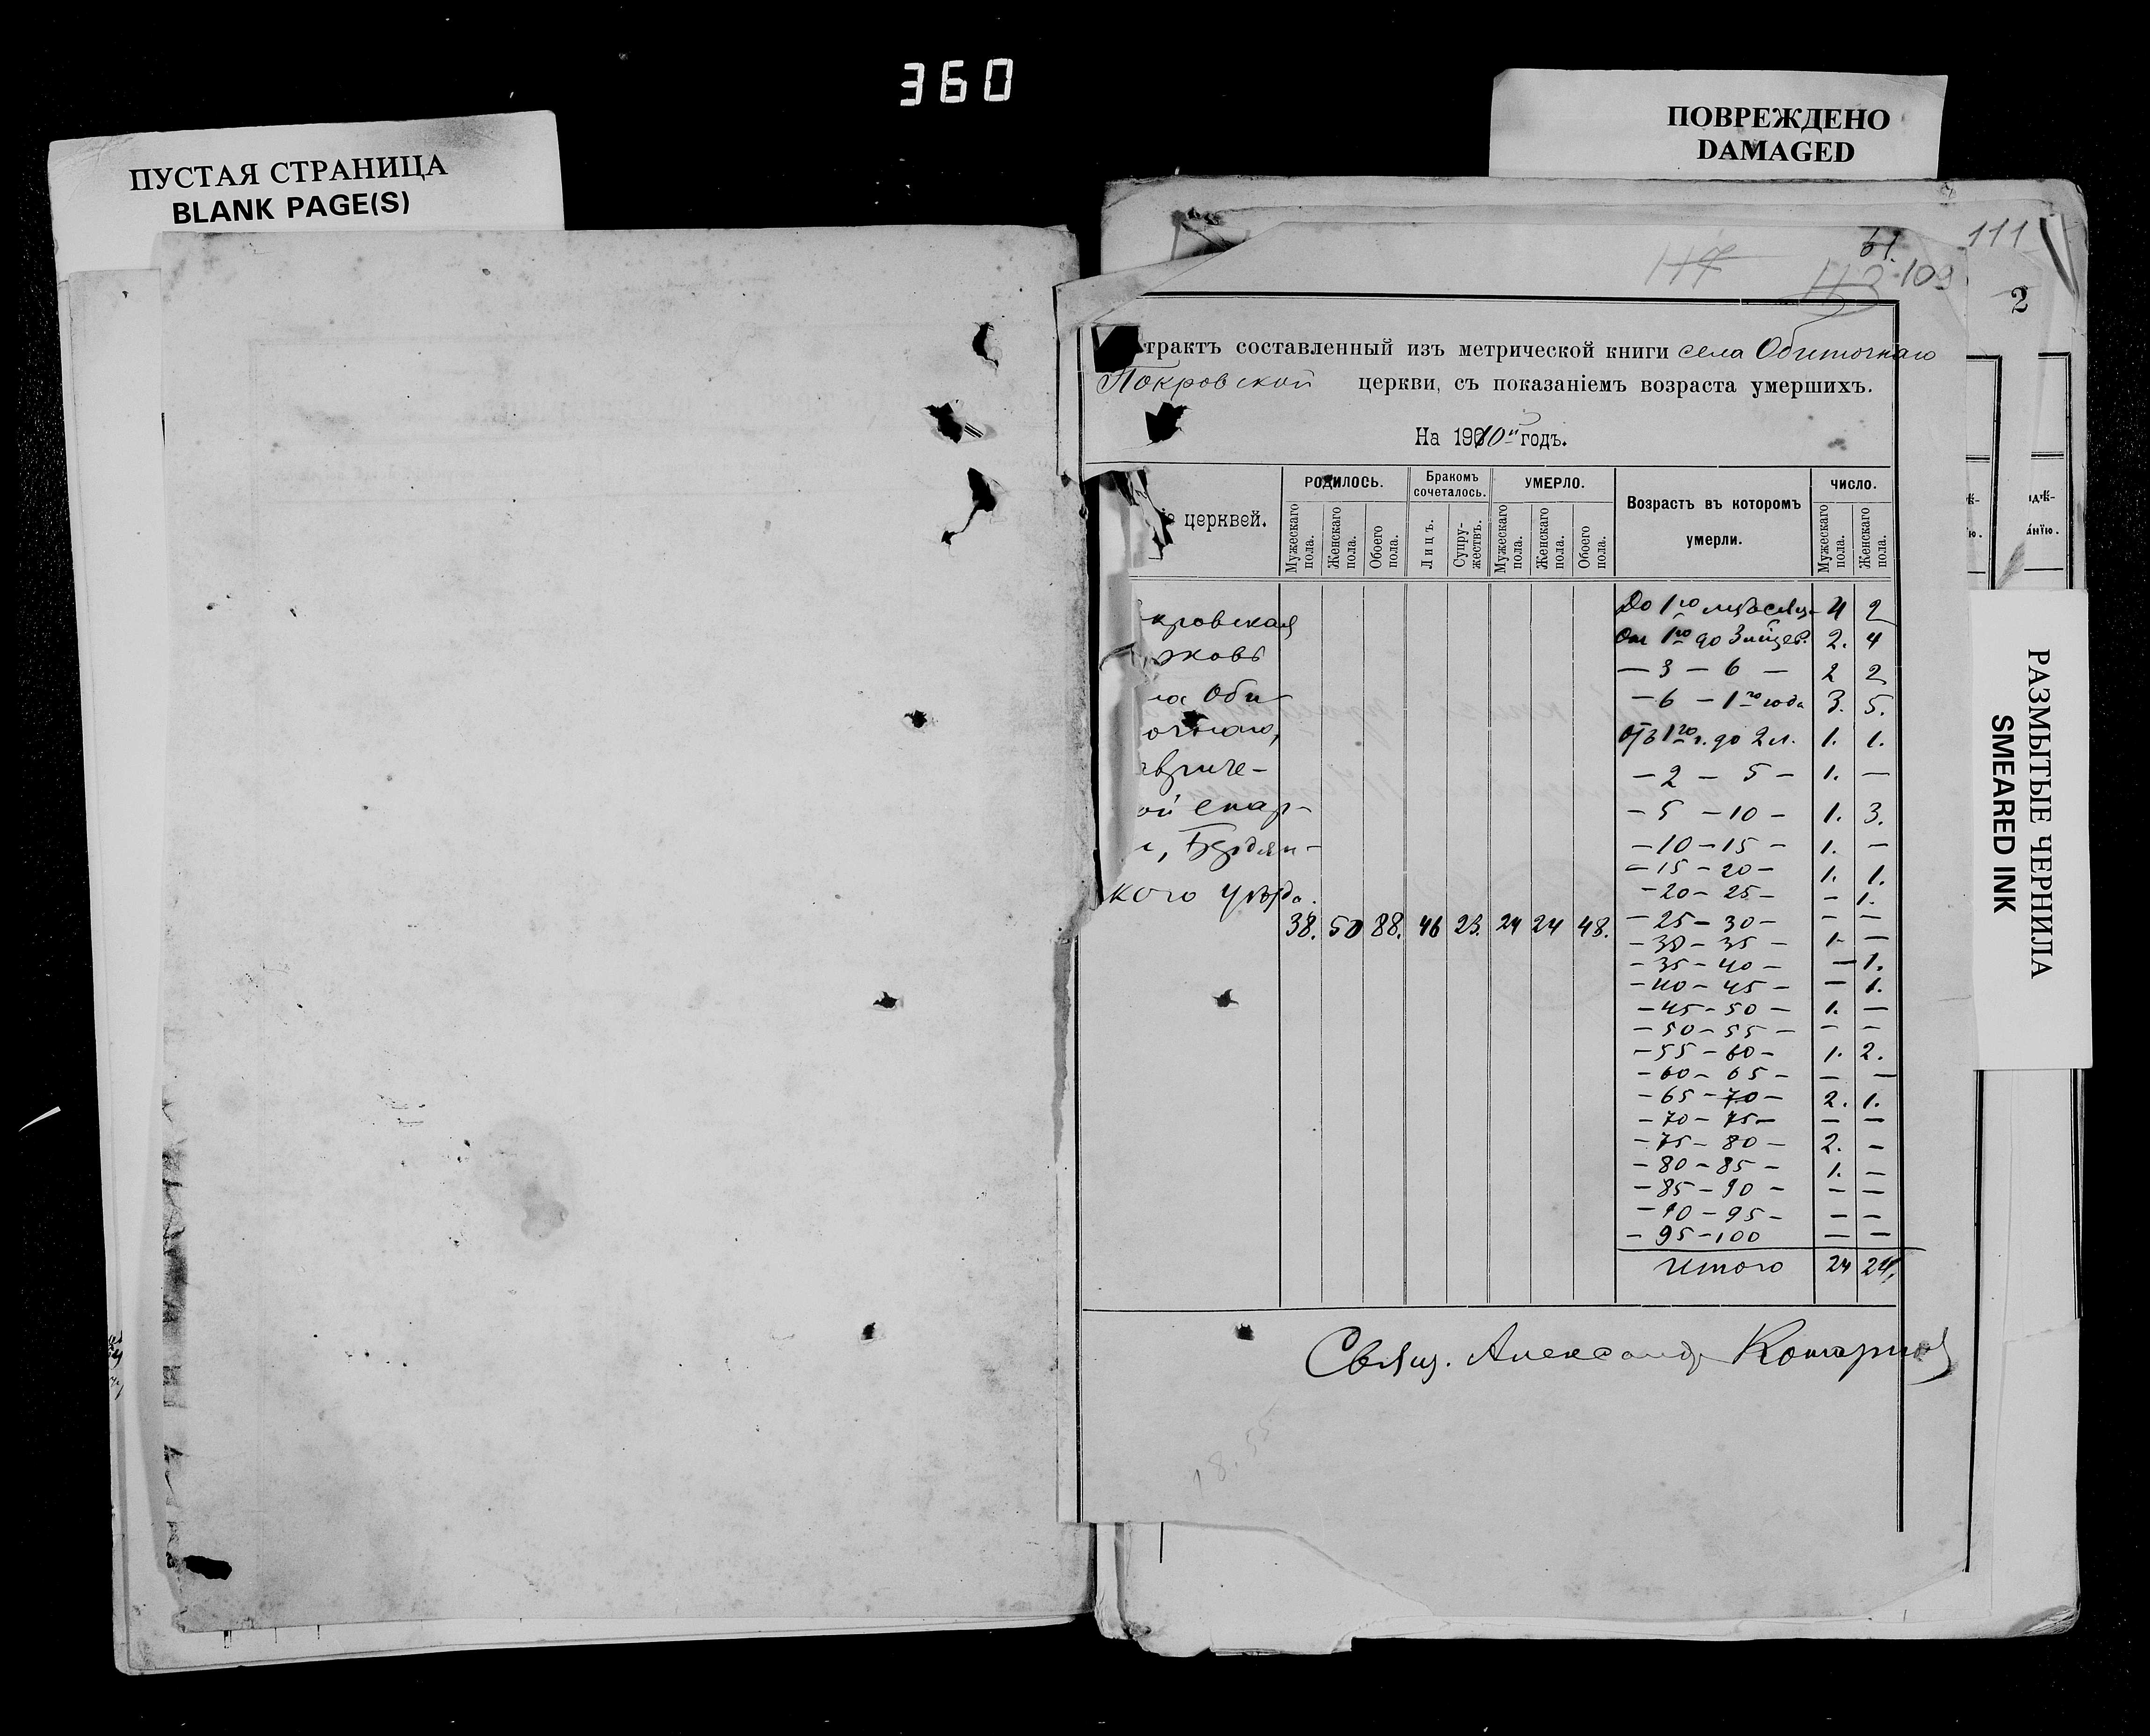 360
ПУСТАЯ СТРАНИЦА
BLANK PAGE(S)
ПОВРЕЖДЕНО
DAMAGED
61.
111
117
113 109
2
трактъ составленный изъ метрической книги села Обиточнаго
Покровской церкви, съ показаніемъ возраста умершихъ.
На 1910й годъ.
церквей.
РОДИЛОСЬ.
Мужескаго пола.
Женскаго пола.
Обоего пола.
Бракомъ сочеталось.
Лицъ.
Супружествъ.
УМЕРЛО.
Мужескаго пола.
Женскаго пола.
Обоего пола.
Возрастъ въ котором умерли.
ЧИСЛО.
Мужескаго пола.
Женскаго пола.
кровская
рковь
ла Оби-
точнаго,
авриче-
ой епар-
и, Бердян-
кого уѣзда.
38. 50 88. 46 23. 24 24 48.
До 1го мѣсяца 4 2
От 1го до 3 мѣсяц. 2. 4
— 3 — 6 — 2 2
— 6 — 1го года 3. 5.
Отъ 1го г. до 2 л. 1. 1.
— 2 — 5 — 1. —
— 5 — 10 — 1. 3.
— 10 — 15 — 1. —
— 15 — 20 — 1. 1.
— 20 — 25 — — 1.
— 25 — 30 — — —
— 30 — 35 — 1. —
— 35 — 40 — — 1.
— 40 — 45 — — 1.
— 45 — 50 — 1. —
— 50 — 55 — — —
— 55 — 60 — 1. 2.
— 60 — 65 — — —
— 65 — 70 — 2. 1.
— 70 — 75 — — —
— 75 — 80 — 2. —
— 80 — 85 — 1. —
— 85 — 90 — — —
— 90 — 95 — — —
— 95 — 100 — —
Итого 24 24.
Свящ. Александр
18.55
РАЗМЫТЫЕ ЧЕРНИЛА
SMEARED INK